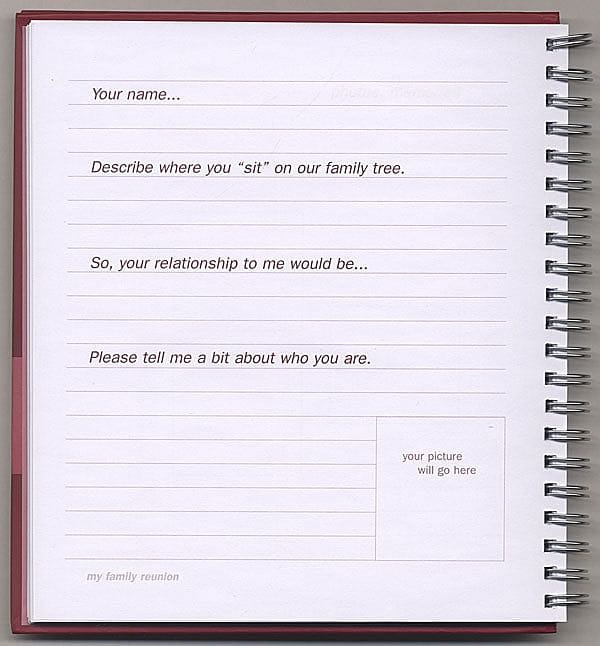 Your name...
Describe where you “sit” on our family tree.
So, your relationship to me would be...
Please tell me a bit about who you are.
your picture
will go here
my family reunion